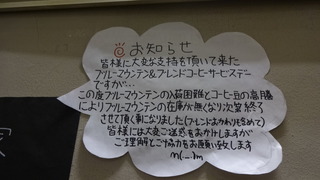 お知らせ
皆様に大変な支持を頂いて来た
ブルーマウンテン&ブレンドコーヒーサービスデー
ですが…
この度ブルーマウンテンの入荷困難とコーヒー豆の高騰
によりブルーマウンテンの在庫が無くなり次第終了
させて頂く事になりました(ブレンドおかわりを含めて)
皆様には大変ご迷惑をおかけしますが
ご理解とご協力をお願い致します
m(__)m